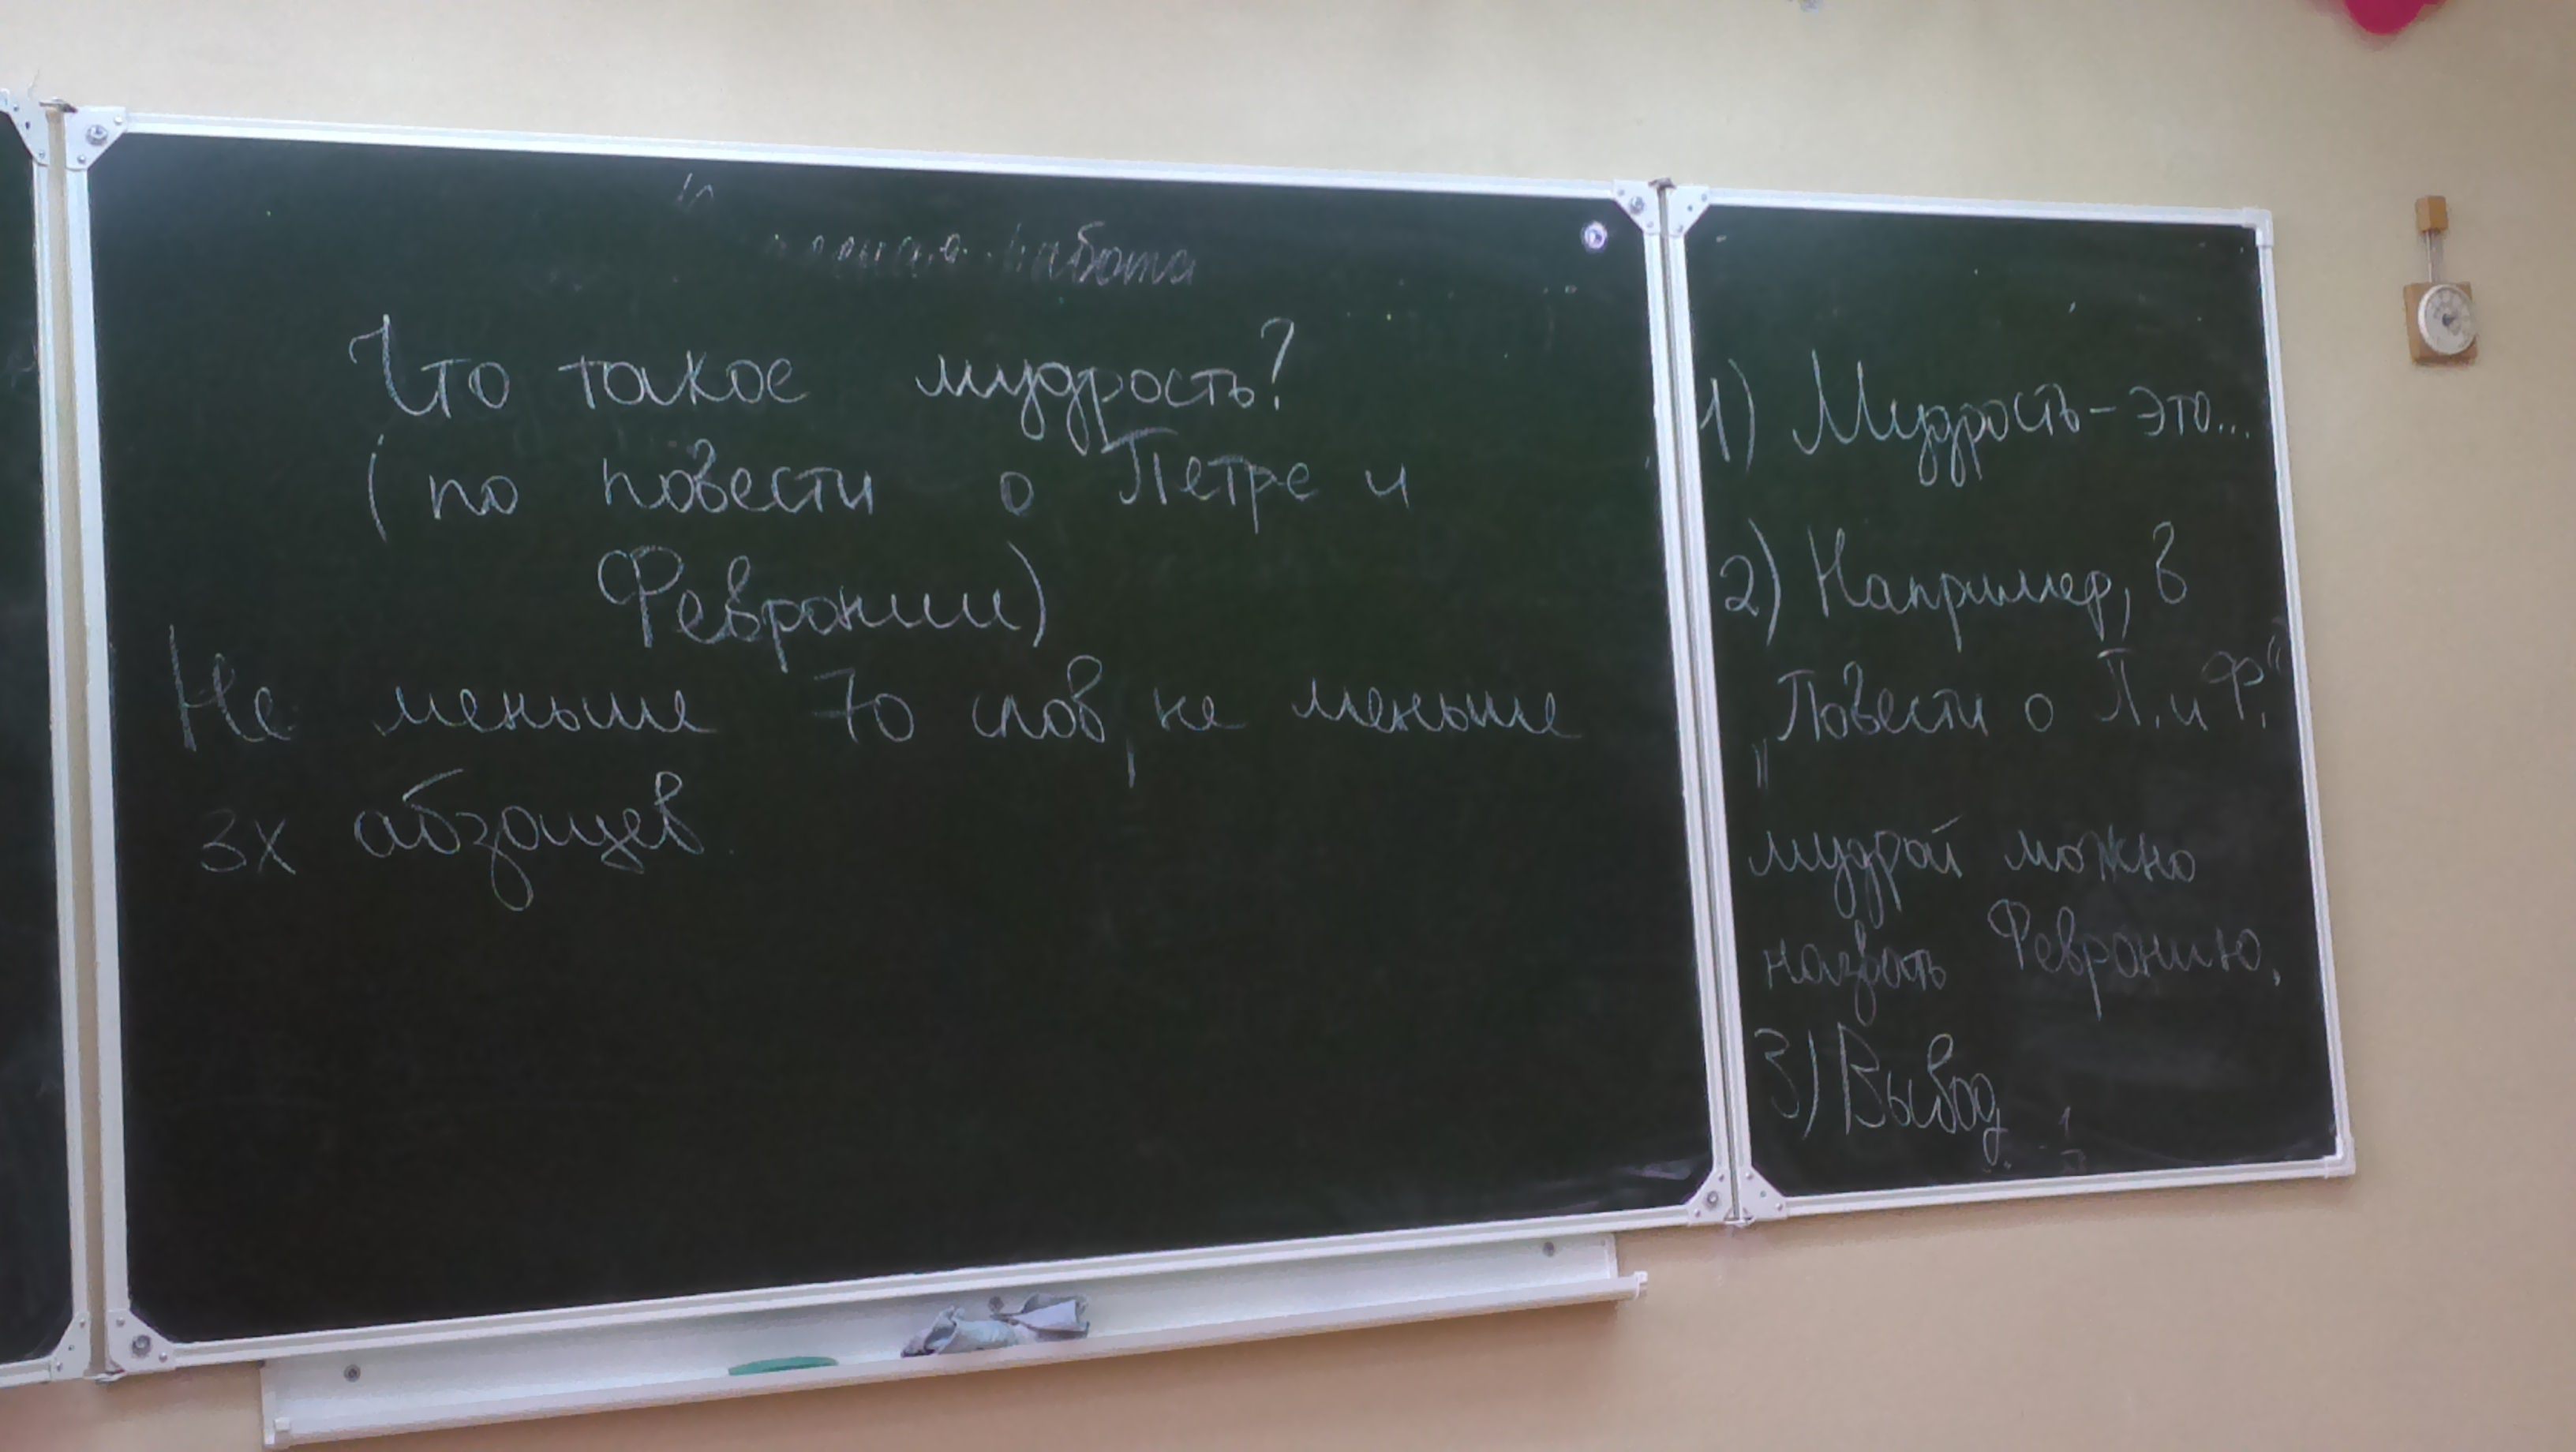 работа
Что такое мудрость?
(по повести о Петре и
Февронии)
Не меньше 70 слов, не меньше
3х абзацев.
1) Мудрость - это...
2) Например, в
„Повести о П. и Ф."
мудрой можно
назвать Февронию.
3) Вывод